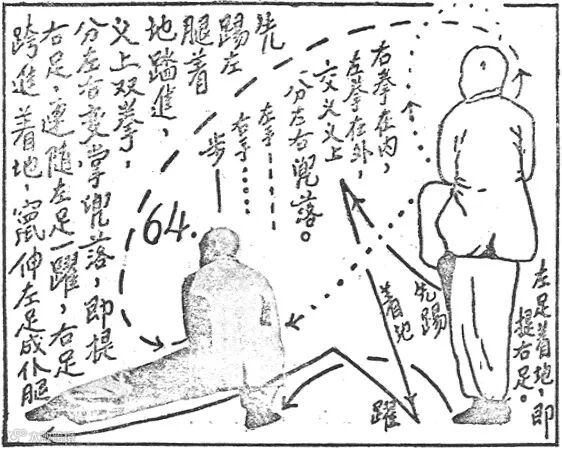 左足着地，即
提右足。
右拳在内，
左拳在外，
交叉叉上
分左右兜落。
左手
右手
步
64.
先踢
着地
躍
先
踢左
腿着
地踏進，
叉上双拳，
分左右变掌兜落，即提
右足，連随左足一躍，右足
跨進着地，竄伸左足成仆腿